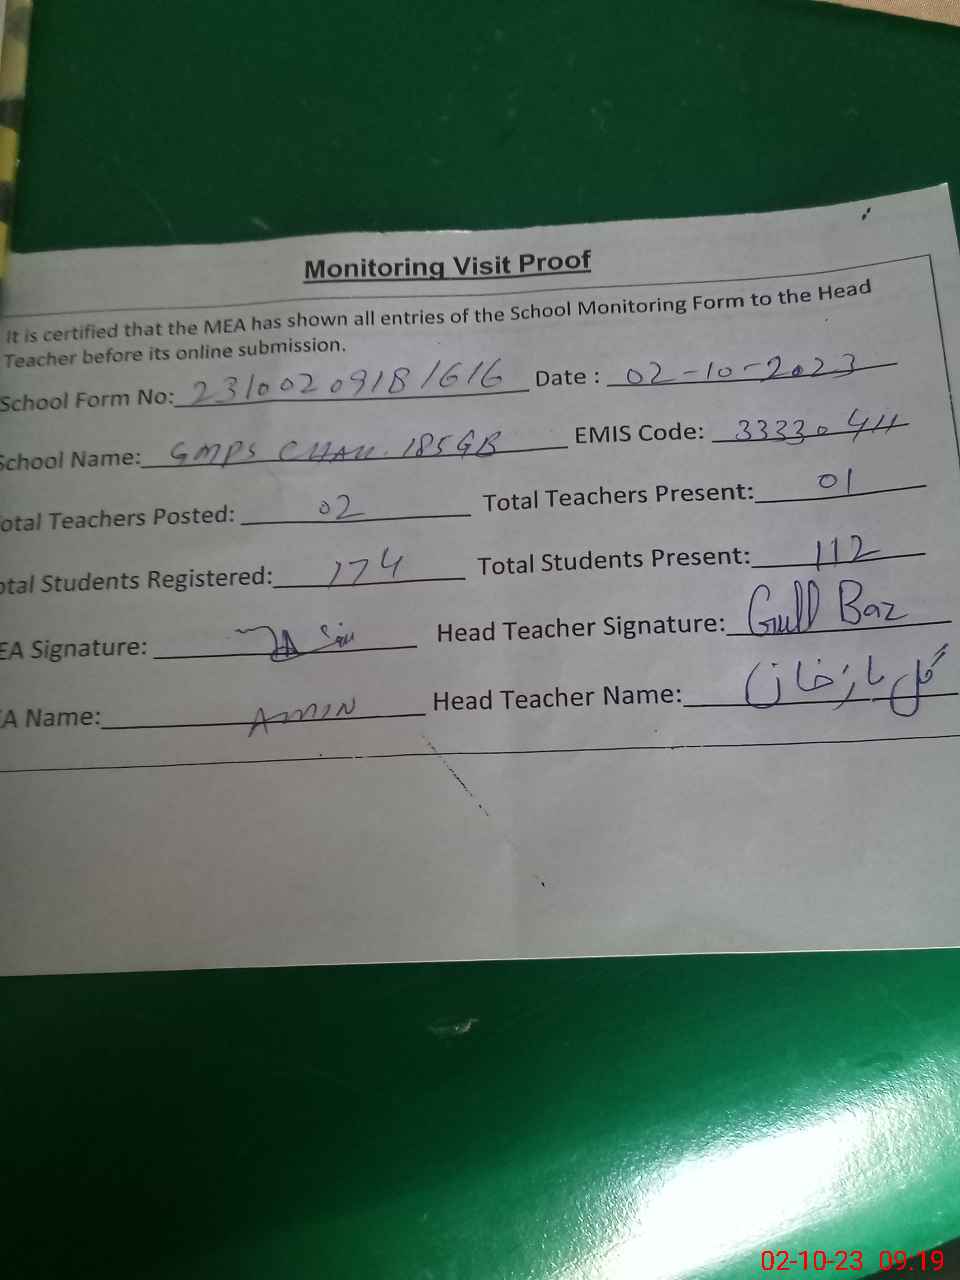 Monitoring Visit Proof
It is certified that the MEA has shown all entries of the School Monitoring Form to the Head
Teacher before its online submission.
School Form No: 23100209181616 Date : 02-10-2023
School Name: GMPS CHAK. 185GB EMIS Code: 33330411
otal Teachers Posted: 02 Total Teachers Present: 01
otal Students Registered: 174 Total Students Present: 112
EA Signature: Head Teacher Signature: Gull Baz
A Name: AMIN Head Teacher Name: گل باز خان
02-10-23 09:19